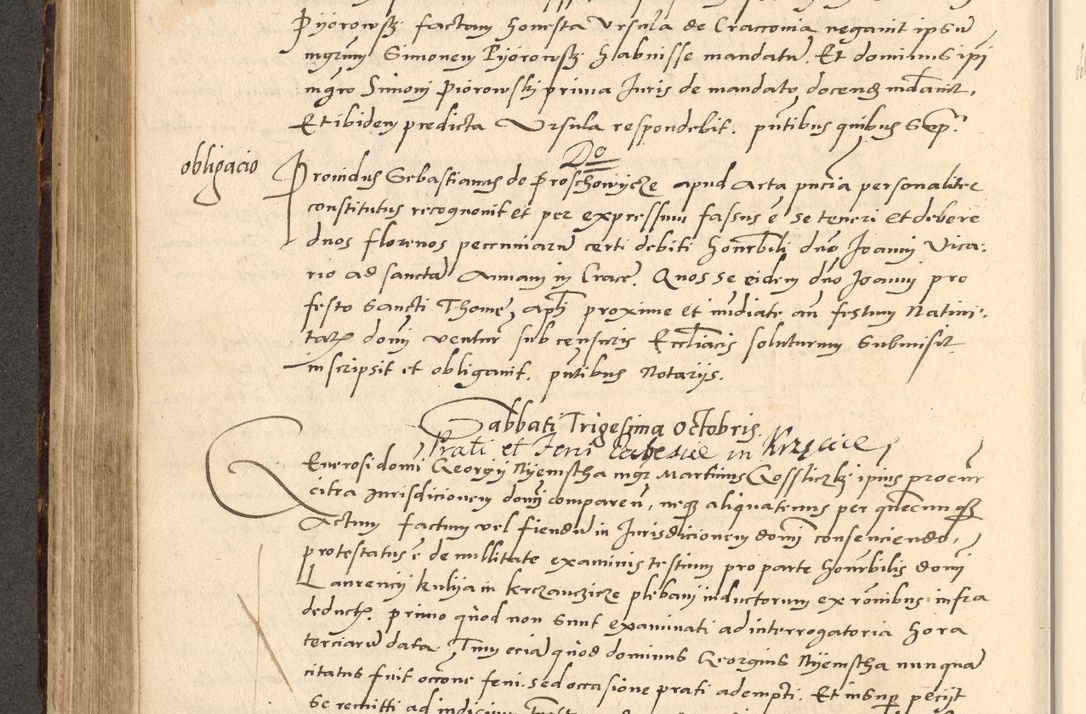 Pijorowskj factam honesta Ursula de Cracovia negavit ipsu
mgrum Simonem Pijorowskj habuisse mandatu. Et dominus ipi
mgro Simoni Piorowskj prima Juris de mandato docend mdavit.
Et ibidem predicta Ursula respondebit. pntibus quibus Supr.
Do
obligacio
Providus Sebastianus de Proschowijcze apud Acta pncia personalitr
constitutus recognovit et per expressum fassus e se teneri et debere
duos florenos pecuniaru certi debiti honrbili dno Joanni Vica-
rio ad sancta Annam in Crace. Quos se eidem dno Joanni pro
festo Sancti Thome apli proxime et imdiate an festum Nativi-
tatis domi ventur sub censuris Eccliacis soluturum submisit
inscripsit et obligavit. pntibus Notarijs.
Sabbati Trigesima Octobris
Prati et feni
in
Generosi domi Georgij Nijemstha mgr Martinus Gossliczkj ipius procur
citra Jurisdicionem domi comparen, neq aliquatenus per quecunq
Actum factum vel fiendu in Jurisdicionem domi consenciendo,
protestatus e de nullitate examinis testium pro parte honrbilis domi
Laurencij kulija in plebani inductorum ex ronibus infra
deducts. primo quod non sunt examinati ad interrogatoria hora
terciaru data, Tum eciam quod dominus Georgius Nijemstha nunqua
citatus fuit occone feni. sed occasione prati adempti. Et insup pecijt
se remitti ad